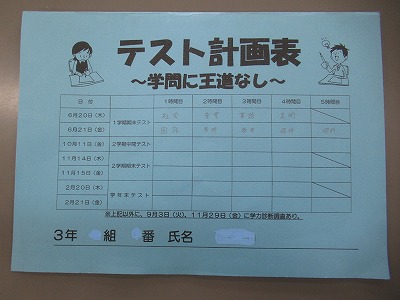 テスト計画表
～学問に王道なし～
日付 1時間目 2時間目 3時間目 4時間目 5時間目
6月20日(木) 1学期期末テスト 社会 音楽 英語 美術
6月21日(金) 国語 数学
10月11日(金) 2学期中間テスト
11月14日(木) 2学期期末テスト
11月15日(金)
2月20日(木) 学年末テスト
2月21日(金)
※上記以外に、9月3日(火)、11月29日(金)に学力診断調査あり。
3年 組 番 氏名